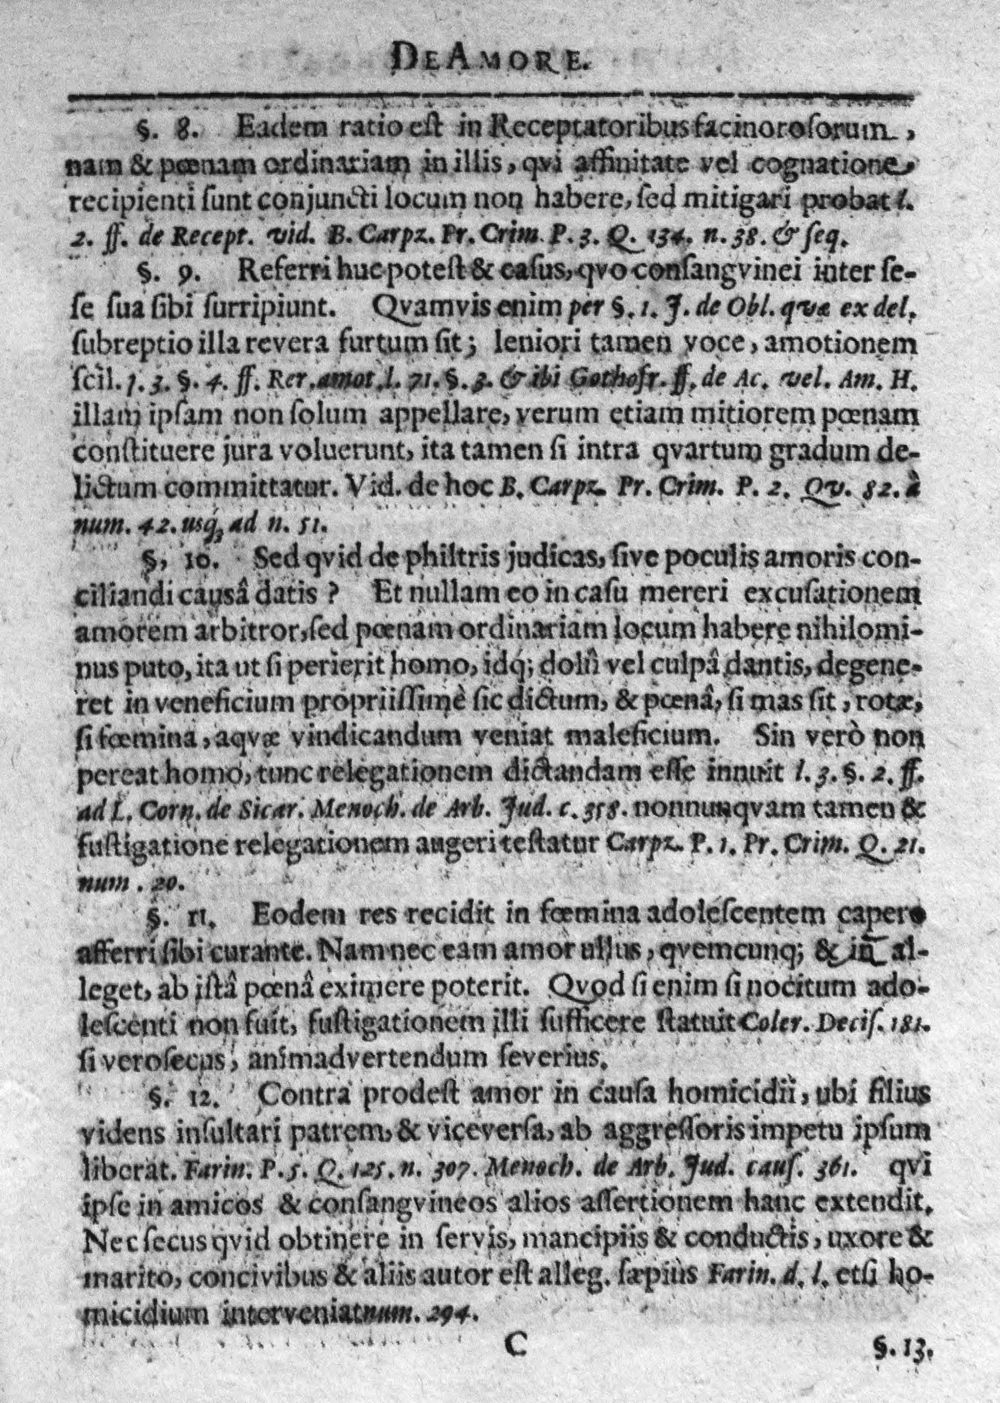 DE AMORE.
§. 8. Eadem ratio eſt in Receptatoribus facinoroſorum,
nam & pœnam ordinariam in illis, qvi affinitate vel cognatione
recipienti ſunt conjuncti locum non habere, ſed mitigari probat l.
2. ff. de Recept. vid. B. Carpz. Pr. Crim. P. 3. Q. 134. n. 38. & ſeq.
§. 9. Referri huc poteſt & caſus, qvo conſangvinei inter ſe-
ſe sua ſibi ſurripiunt. Qvamvis enim per §. 1. J. de Obl. qvæ ex del.
ſubreptio illa revera furtum ſit; leniori tamen voce, amotionem
ſcil. l. 3. §. 4. ff. Rer. amot. l. 71. §. 3. & ibi Gothofr. ff. de Ac. vel. Am. H.
illam ipſam non ſolum appellare, verum etiam mitiorem pœnam
conſtituere jura voluerunt, ita tamen ſi intra qvartum gradum de-
lictum committatur. Vid. de hoc B. Carpz. Pr. Crim. P. 2. Qv. 82. à
num. 42. usq; ad n. 51.
§. 10. Sed qvid de philtris judicas, ſive poculis amoris con-
ciliandi cauſâ datis? Et nullam eo in caſu mereri excuſationem
amorem arbitror, ſed pœnam ordinariam locum habere nihilomi-
nus puto, ita ut ſi perierit homo, idq; dolô vel culpâ dantis, degene-
ret in veneficium propriiſſimè ſic dictum, & pœnâ, ſi mas ſit, rotæ,
ſi fœmina, aqvæ vindicandum veniat maleficium. Sin verò non
pereat homo, tunc relegationem dictandam eſſe innuit l. 3. §. 2. ff.
ad L. Corn. de Sicar. Menoch. de Arb. Jud. c. 358. nonnunqvam tamen &
fuſtigatione relegationem augeri teſtatur Carpz. P. 1. Pr. Crim. Q. 21.
num. 20.
§. 11. Eodem res recidit in fœmina adoleſcentem capere
afferri ſibi curante. Nam nec eam amor ullus, qvemcunq; & in al-
leget, ab iſtâ pœnâ eximere poterit. Qvod ſi enim ſi nocitum ado-
leſcenti non fuit, fuſtigationem illi ſufficere ſtatuit Coler. Deciſ. 181.
ſi vero ſecus, animadvertendum ſeverius.
§. 12. Contra prodeſt amor in cauſa homicidii, ubi filius
videns inſultari patrem, & viceverſa, ab aggreſſoris impetu ipſum
liberat. Farin. P. 5. Q. 125. n. 307. Menoch. de Arb. Jud. cauſ. 361. qvi
ipſe in amicos & conſangvineos alios aſſertionem hanc extendit.
Nec ſecus qvid obtinere in ſervis, mancipiis & conductis, uxore &
marito, concivibus & aliis autor eſt alleg. ſæpiùs Farin. d. l. etſi ho-
micidium interveniat num. 294.
C §. 13.